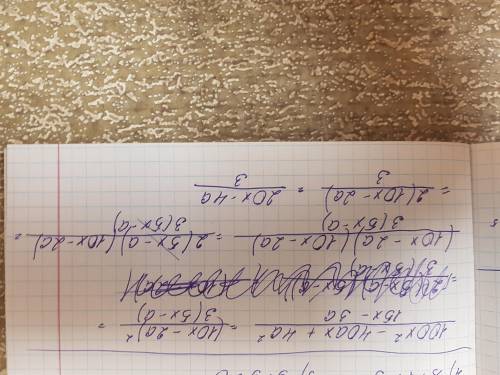 100x² - 40ax + 4a² / 15x - 3a = (10x - 2a)² / 3(5x - a) =
(10x - 2a)(10x - 2a) / 3(5x - a) = 2(5x - a)(10x - 2a) / 3(5x - a) =
= 2(10x - 2a) / 3 = 20x - 4a / 3